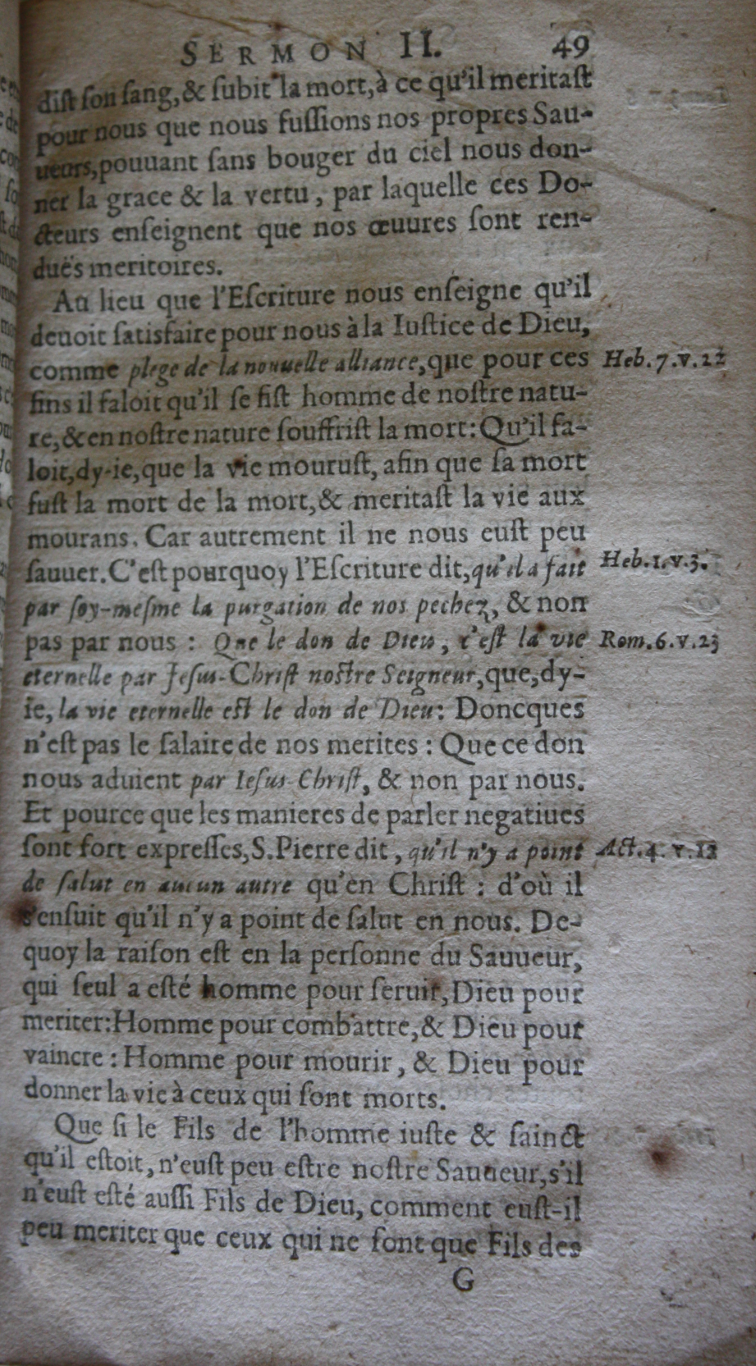 SERMON II. 49
dist son sang, & subit la mort, à ce qu'il meritast
pour nous que nous fussions nos propres Sau-
ueurs, pouuant sans bouger du ciel nous don-
ner la grace & la vertu, par laquelle ces Do-
cteurs enseignent que nos œuures sont ren-
duës meritoires.
Au lieu que l'Escriture nous enseigne qu'il
deuoit satisfaire pour nous à la Iustice de Dieu,
comme plege de la nouuelle alliance, que pour ces Heb. 7. v. 22
fins il faloit qu'il se fist homme de nostre natu-
re, & en nostre nature souffrist la mort: Qu'il fa-
loit, dy-ie, que la vie mourust, afin que sa mort
fust la mort de la mort, & meritast la vie aux
mourans. Car autrement il ne nous eust peu
sauuer. C'est pourquoy l'Escriture dit, qu'il a fait Heb. 1. v. 3.
par soy-mesme la purgation de nos pechez, & non
pas par nous : Que le don de Dieu, c'est la vie Rom. 6. v. 23
eternelle par Jesus-Christ nostre Seigneur, que, dy-
ie, la vie eternelle est le don de Dieu: Doncques
n'est pas le salaire de nos merites : Que ce don
nous aduient par Iesus-Christ, & non par nous.
Et pource que les manieres de parler negatiues
sont fort expresses, S. Pierre dit, qu'il n'y a point Act. 4. v. 12
de salut en aucun autre qu'en Christ : d'où il
s'ensuit qu'il n'y a point de salut en nous. De-
quoy la raison est en la personne du Sauueur,
qui seul a esté homme pour seruir, Dieu pour
meriter: Homme pour combattre, & Dieu pour
vaincre : Homme pour mourir, & Dieu pour
donner la vie à ceux qui sont morts.
Que si le Fils de l'homme iuste & sainct
qu'il estoit, n'eust peu estre nostre Sauueur, s'il
n'eust esté aussi Fils de Dieu, comment eust-il
peu meriter que ceux qui ne sont que Fils des
G